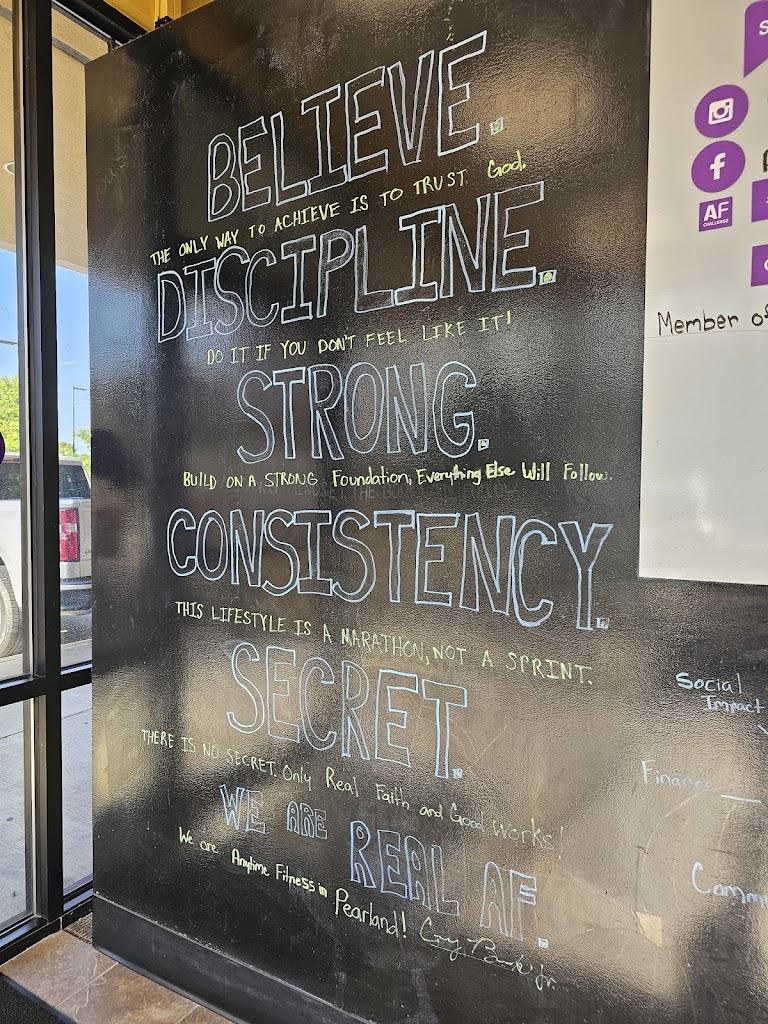 BELIEVE.
THE ONLY WAY TO ACHIEVE IS TO TRUST God.
DISCIPLINE.
DO IT IF YOU DON'T FEEL LIKE IT!
STRONG.
BUILD ON A STRONG Foundation, Everything Else Will Follow.
CONSISTENCY.
THIS LIFESTYLE IS A MARATHON, NOT A SPRINT.
SECRET.
THERE IS NO SECRET. Only Real Faith and Good works!
WE ARE REAL AF.
We are Anytime Fitness in Pearland!
AF
CHALLENGE
Member of
Social
Impact
Finance